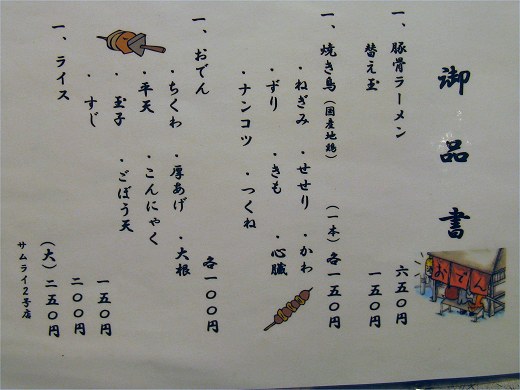 御品書
おでん
一、豚骨ラーメン 六五〇円
替え玉 一五〇円
一、焼き鳥(国産地鶏) (一本)各一五〇円
・ねぎみ ・せせり ・かわ
・ずり ・きも ・心臓
・ナンコツ ・つくね
一、おでん 各一〇〇円
・ちくわ ・厚あげ ・大根
・平天 ・こんにゃく
・玉子 ・ごぼう天
・すじ
一、ライス 一五〇円
二〇〇円
(大)二五〇円
サムライ2号店